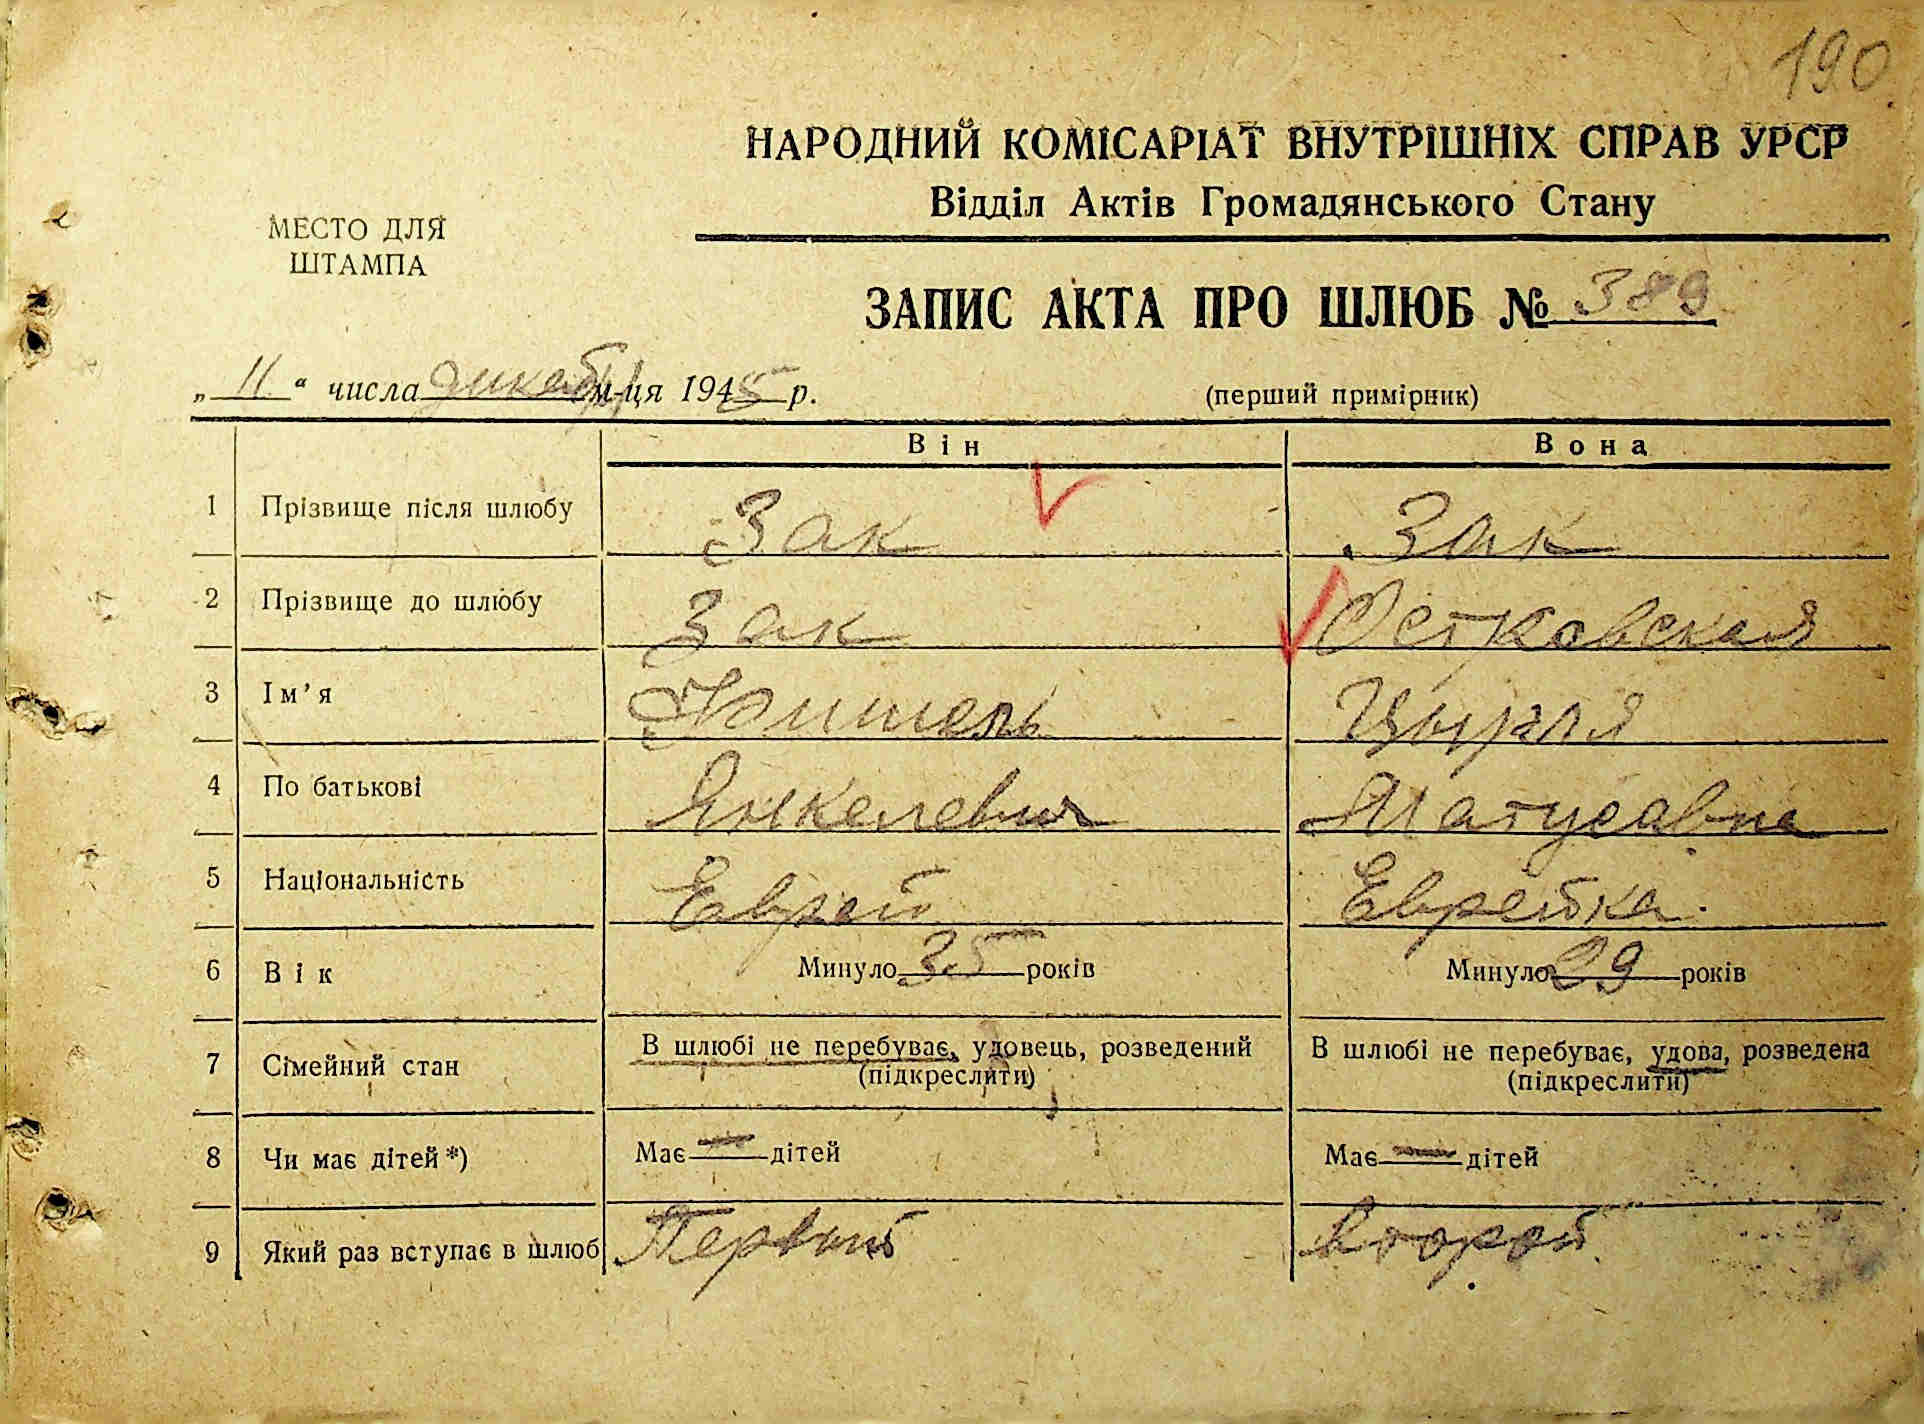 190
НАРОДНИЙ КОМІСАРІАТ ВНУТРІШНІХ СПРАВ УРСР
Відділ Актів Громадянського Стану
МЕСТО ДЛЯ
ШТАМПА
ЗАПИС АКТА ПРО ШЛЮБ № 389
„ 11 “ числа декабр м-ця 1945 р.
(перший примірник)
Він Вона
1 Прізвище після шлюбу Зак Зак
2 Прізвище до шлюбу Зак Островская
3 Ім’я
4 По батькові Янкелевич Матусавна
5 Національність Еврей Еврейка.
6 Вік Минуло 35 років Минуло 29 років
7 Сімейний стан В шлюбі не перебуває, удовець, розведений В шлюбі не перебуває, удова, розведена
(підкреслити) (підкреслити)
8 Чи має дітей*) Має — дітей Має — дітей
9 Який раз вступає в шлюб Первый второй.